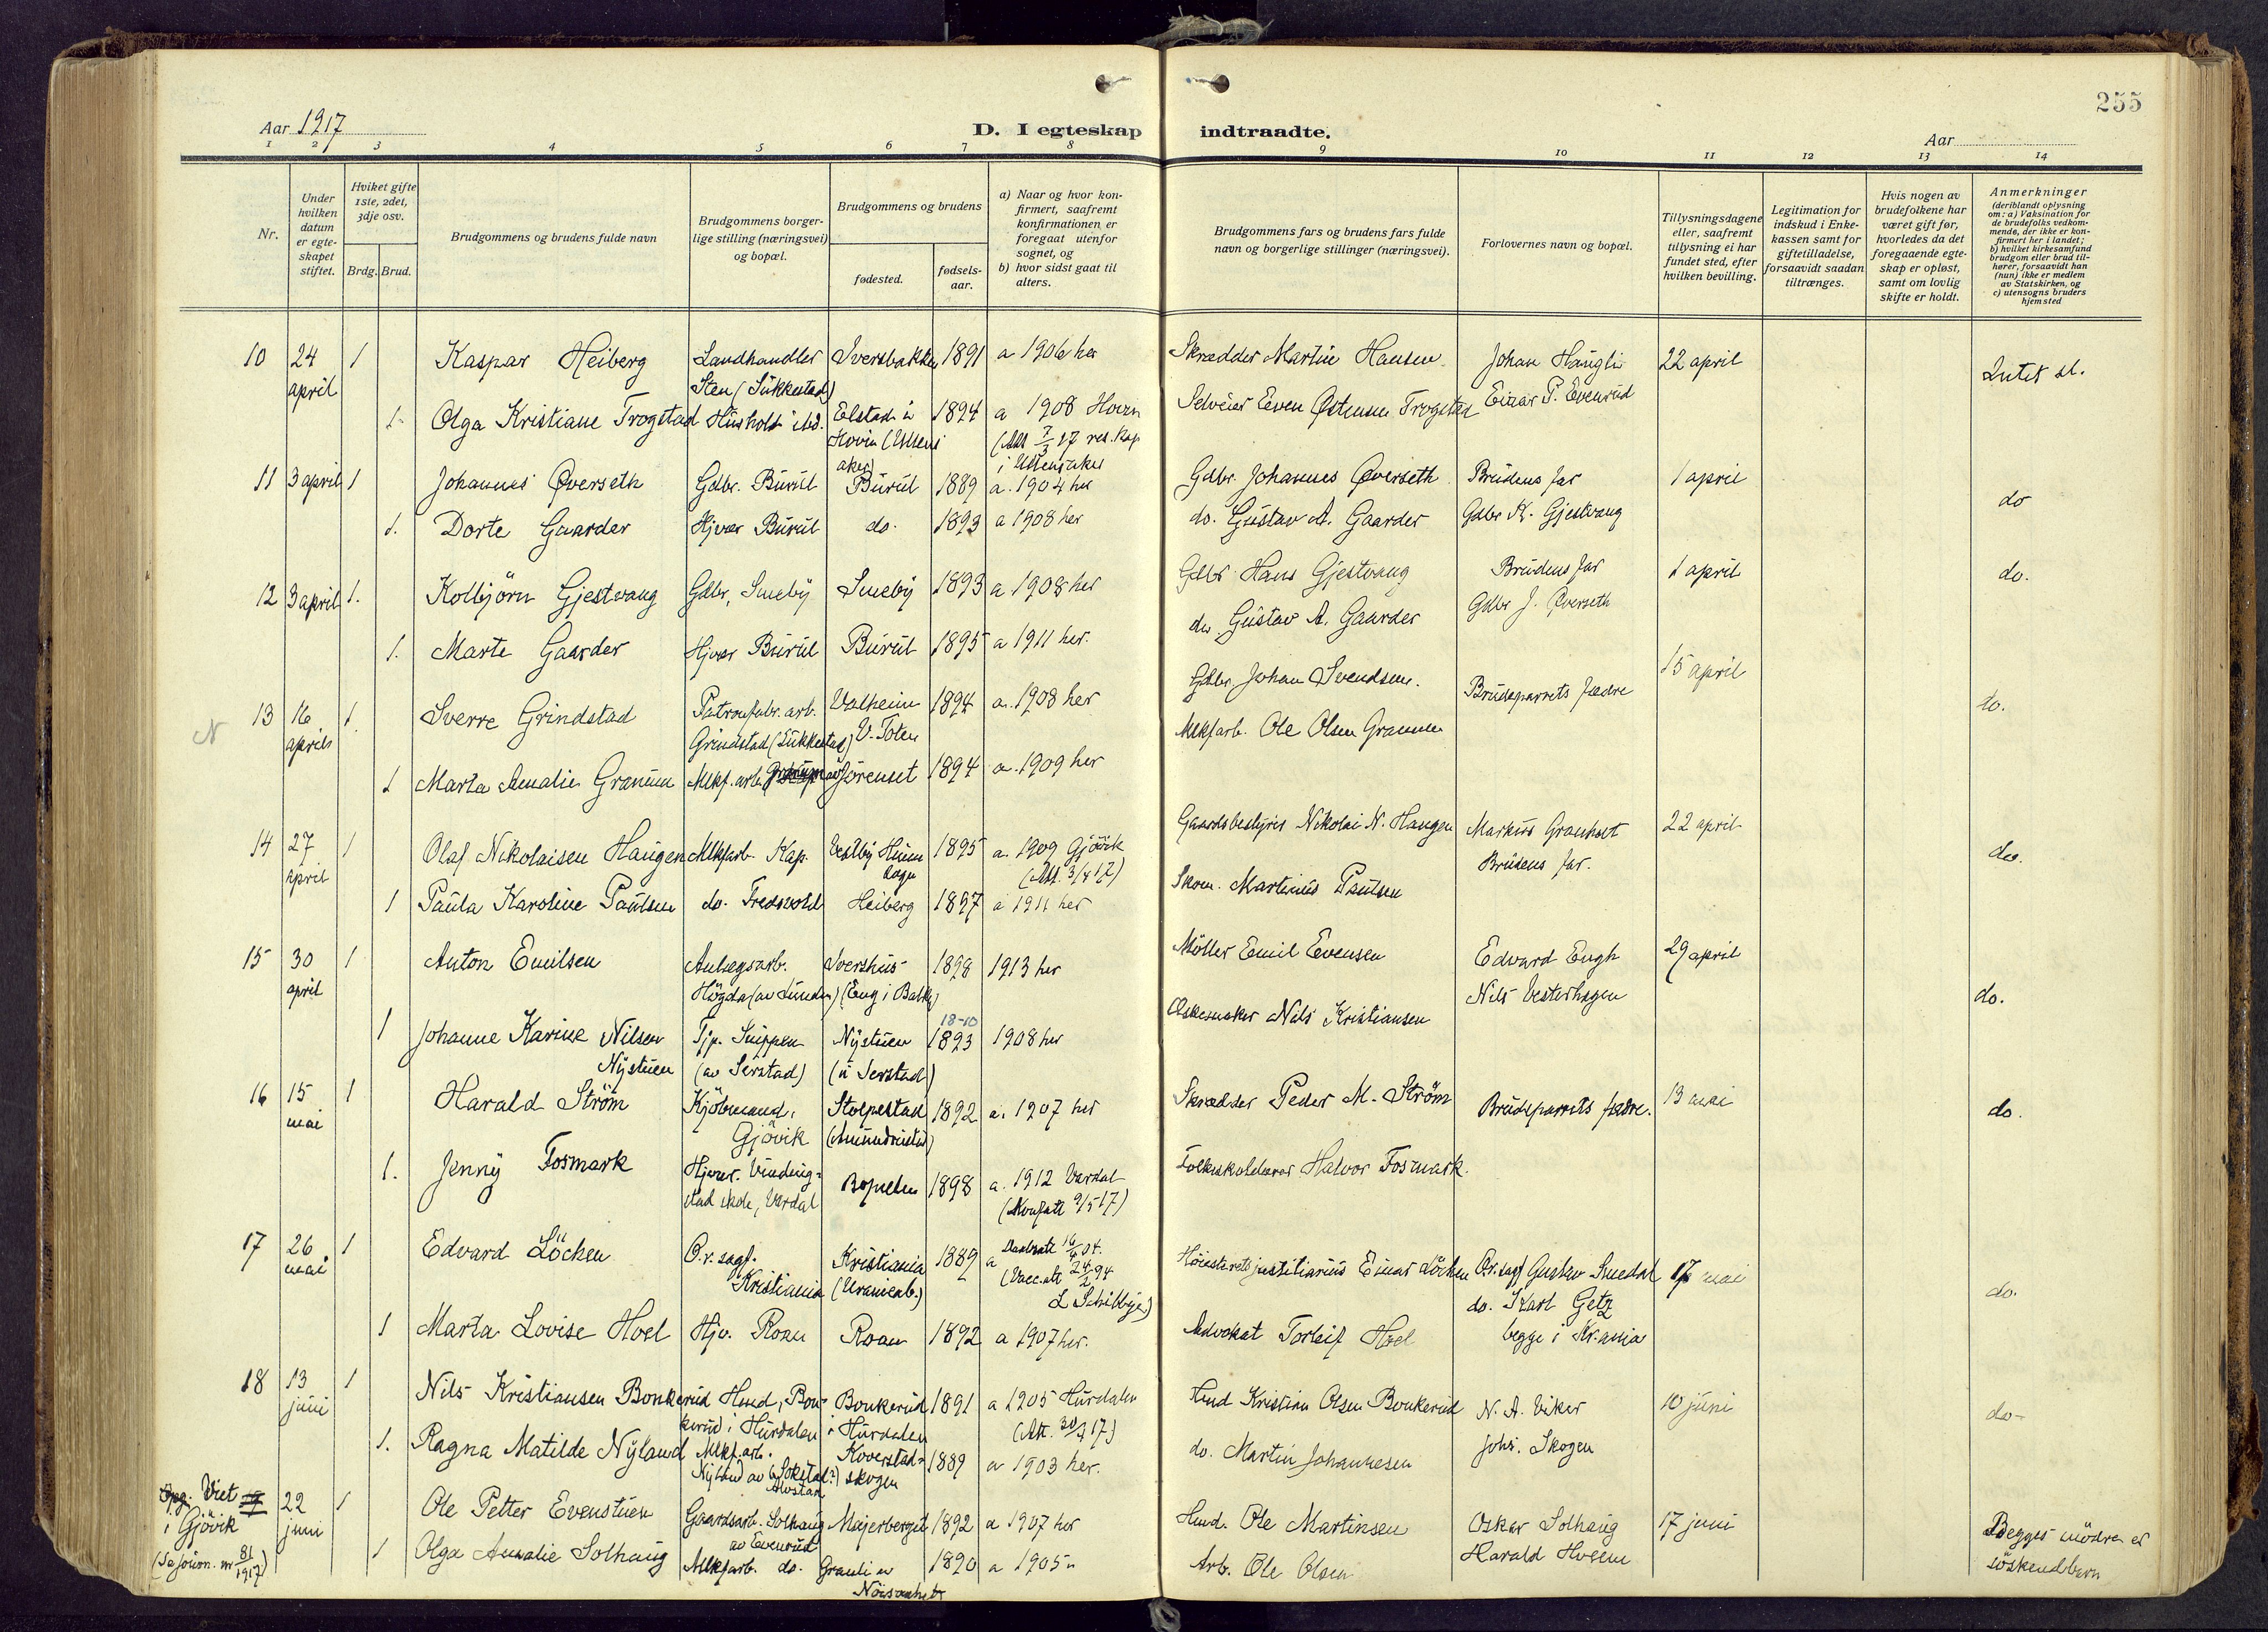 255
Aar 1917
D. I egteskap indtraadte.
Aar
1 2 3 4 5 6 7 8 9 10 11 12 13 14
Nr.
Under hvilken datum er egteskapet stiftet.
Hviket gifte 1ste, 2det, 3dje osv.
Brdg. Brud.
Brudgommens og brudens fulde navn
Brudgommens borgerlige stilling (næringsvei) og bopæl.
Brudgommens og brudens
fødested.
fødselsaar.
a) Naar og hvor konfirmert, saafremt konfirmationen er foregaat utenfor sognet, og
b) hvor sidst gaat til alters.
Brudgommens fars og brudens fars fulde navn og borgerlige stillinger (næringsvei).
Forlovernes navn og bopæl.
Tillysningsdagene eller, saafremt tillysning ei har fundet sted, efter hvilken bevilling.
Legitimation for indskud i Enkekassen samt for giftetilladelse, forsaavidt saadan tiltrænges.
Hvis nogen av brudefolkene har været gift før, hvorledes da det foregaaende egteskap er opløst, samt om lovlig skifte er holdt.
Anmerkninger (deriblandt oplysning om: a) Vaksination for de brudefolks vedkommende, der ikke er konfirmert her i landet; b) hvilket kirkesamfund brudgom eller brud tilhører, forsaavidt han (hun) ikke er medlem av Statskirken, og c) utensogns bruders hjemsted
10 24 april 1 Kaspar Heiberg Landhandler Sten (Sukkestad) Sversbakken 1891 a 1906 her Skrædder Martin Hansen Johan Hauglie 22 april Intet sl.
1. Olga Kristiane Trogstad Hushold. ibd. Elstad i Hovin (Ullensaker) 1894 a 1908 Hovin (Att 7/3 17 res. kap i Ullensaker Selveier Even Østensen Trogstad Einar P. Evenrud
11 3 april 1 Johannes Øverseth Gdbr. Burul Burul 1889 a. 1904 her Gdbr. Johannes Øverseth Brudens far 1 april do
1. Dorte Gaarder Hjvær Burul do. 1893 a 1908 her do. Gustav A. Gaarder Gdbr K. Gjestvang
12 3 april 1. Kolbjörn Gjestvang Gdbr, Smeby Smeby 1893 a 1908 her Gdbr Hans Gjestvang Brudens far 1 april do.
1. Marte Gaarder Hjvær Burul Burul 1895 a 1911 her. do Gustav A. Gaarder Gdbr J. Øverseth
N 13 16 april 1. Sverre Grindstad Patronfabr. arb. Grindstad (Sukkestad) Valheim V. Toten 1894 a. 1908 her Gdbr. Johan Svendsen. Brudeparrets fædre 15 april do.
1 Marta Amalie Granum Mekf. arb. Sörenset 1894 a. 1909 her Mekfarb. Ole Olsen Granum
14 27 april 1 Olaf Nikolaisen Haugen Mekfarb. Kap. Vestby Hunndalen 1895 a. 1909 Gjövik (Att. 3/4 17) Gaardsbestyrer Nikolai N. Haugen Markus Granholt 22 april do.
1 Paula Karoline Paulsen do. Fredsvold Heiberg 1897 a 1911 her Skom. Martinus Paulsen Brudens far.
15 30 april 1 Anton Emilsen Anlægsarb. Högda (av Lunden) Svershus (Eng i Balke) 1898 1913 her Möller Emil Evensen Edvard Engh 29 april do.
1 Johanne Karine Nilsen Nystuen Tjp. Snippen (av Serstad) Nystuen (u Serstad) 18-10 1893 1908 her Æskemaker Nils Kristiansen Nils Vesterhagen
16 15 mai 1 Harald Ström Kjöbmand, Gjövik Stolpestad 1892 a. 1907 her Skrædder Peder M. Ström Brudeparrets fædre. 13 mai do.
1. Jenny Fosmark Hjvær. Vindingstad skole, Vardal Bopælen 1898 a. 1912 Vardal (Konfatt 9/5 17) Folkeskolelærer Halvor Fosmark
17 26 mai 1 Edvard Löchen O.r. sagf. Kristiania Kristiania (Uranienb.) 1889 a Daabsatt 16/4 04. (Vacc. att 24/2 94 L Schibbye) Höiesteretsjustitiarius Einar Löchen O.r. sagf Gustav Smedal 17 mai do.
1 Marta Lovise Hoel Hjv. Roan Roan 1892 a 1907 her. Advokat Torleif Hoel do. Karl Getz begge i Kr.ania
18 13 juni 1 Nils Kristiansen Bonkerud Hmd, Bonkerud i Hurdalen Bonkerud i Hurdalen 1891 a 1905 Hurdalen (Att. 30/4 17) Hmd Kristian Olsen Bonkerud N. A. Viker 10 juni do-
1. Ragna Matilde Nyland Mekf.arb. Nyland av Sokstad? Alvstad Koverstadskogen 1889 a 1903 her. do. Martin Johannesen Johs. Skogen
Opg. Viet i Gjövik (Se journ. nr 81/1917) 22 juni 1 Ole Petter Evenstuen Gaardsarb. Solhaug av Evenrud Majerberget 1892 a 1907 her Hmd. Ole Martinsen Oskar Solhaug 17 juni Begges mödre er söskendbarn
1 Olga Amalie Solhaug Mekfarb. do. Granli av Nöisomhet 1890 a 1905 " Arb. Ole Olsen Harald Hveem